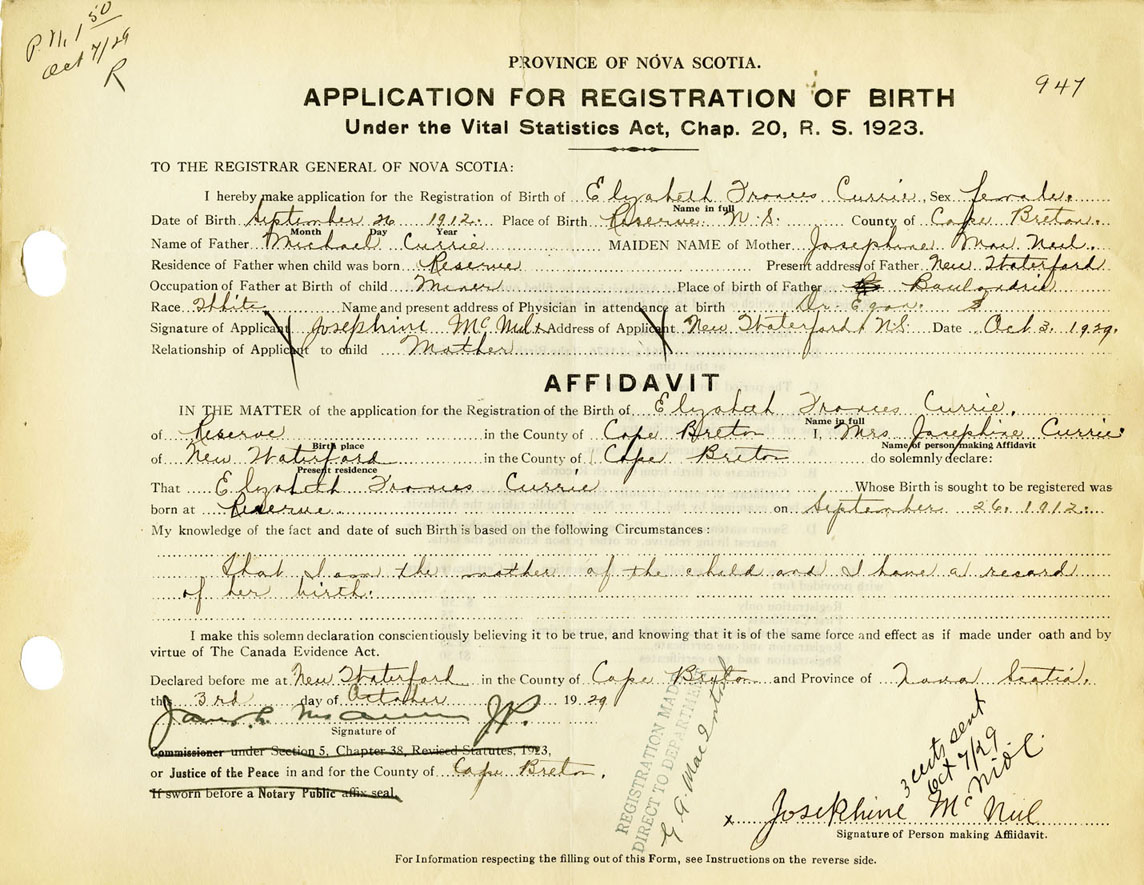 P.N. 1 50
Oct 7/29
R
PROVINCE OF NOVA SCOTIA.
947
APPLICATION FOR REGISTRATION OF BIRTH
Under the Vital Statistics Act, Chap. 20, R. S. 1923.
TO THE REGISTRAR GENERAL OF NOVA SCOTIA:
I hereby make application for the Registration of Birth of Elyzabeth Frances Currie Sex female.
Name in full
Date of Birth September 26 1912. Place of Birth Reserve N.S. County of Cape Breton.
Month Day Year
Name of Father Michael Currie MAIDEN NAME of Mother Josephine Mac Neil.
Residence of Father when child was born Reserve Present address of Father New Waterford
Occupation of Father at Birth of child Miner Place of birth of Father
Race White Name and present address of Physician in attendance at birth Dr. Egan.
Signature of Applicant X Josephine McNeil x Address of Applicant X New Waterford N.S. Date Oct 3. 1929.
Relationship of Applicant to child Mother
AFFIDAVIT
IN THE MATTER of the application for the Registration of the Birth of Elyzabeth Frances Currie.
Name in full
of Reserve in the County of Cape Breton I, Mrs Josephine Currie
Birth place Name of person making Affidavit
of New Waterford in the County of Cape Breton do solemnly declare:
Present residence
That Elyzabeth Frances Currie Whose Birth is sought to be registered was
born at Reserve on September 26. 1912.
My knowledge of the fact and date of such Birth is based on the following Circumstances:
that I am the mother of the child and I have a record
of her birth.
I make this solemn declaration conscientiously believing it to be true, and knowing that it is of the same force and effect as if made under oath and by
virtue of The Canada Evidence Act.
Declared before me at New Waterford in the County of Cape Breton and Province of Nova Scotia.
this 3rd day of October 1929
J.P.
Signature of
Commissioner under Section 5, Chapter 38, Revised Statutes, 1923,
or Justice of the Peace in and for the County of Cape Breton.
If sworn before a Notary Public affix seal.
REGISTRATION MADE
DIRECT TO DEPARTMENT
3 cents sent
Oct 7/29
x Josephine McNeil
Signature of Person making Affidavit.
For Information respecting the filling out of this Form, see Instructions on the reverse side.